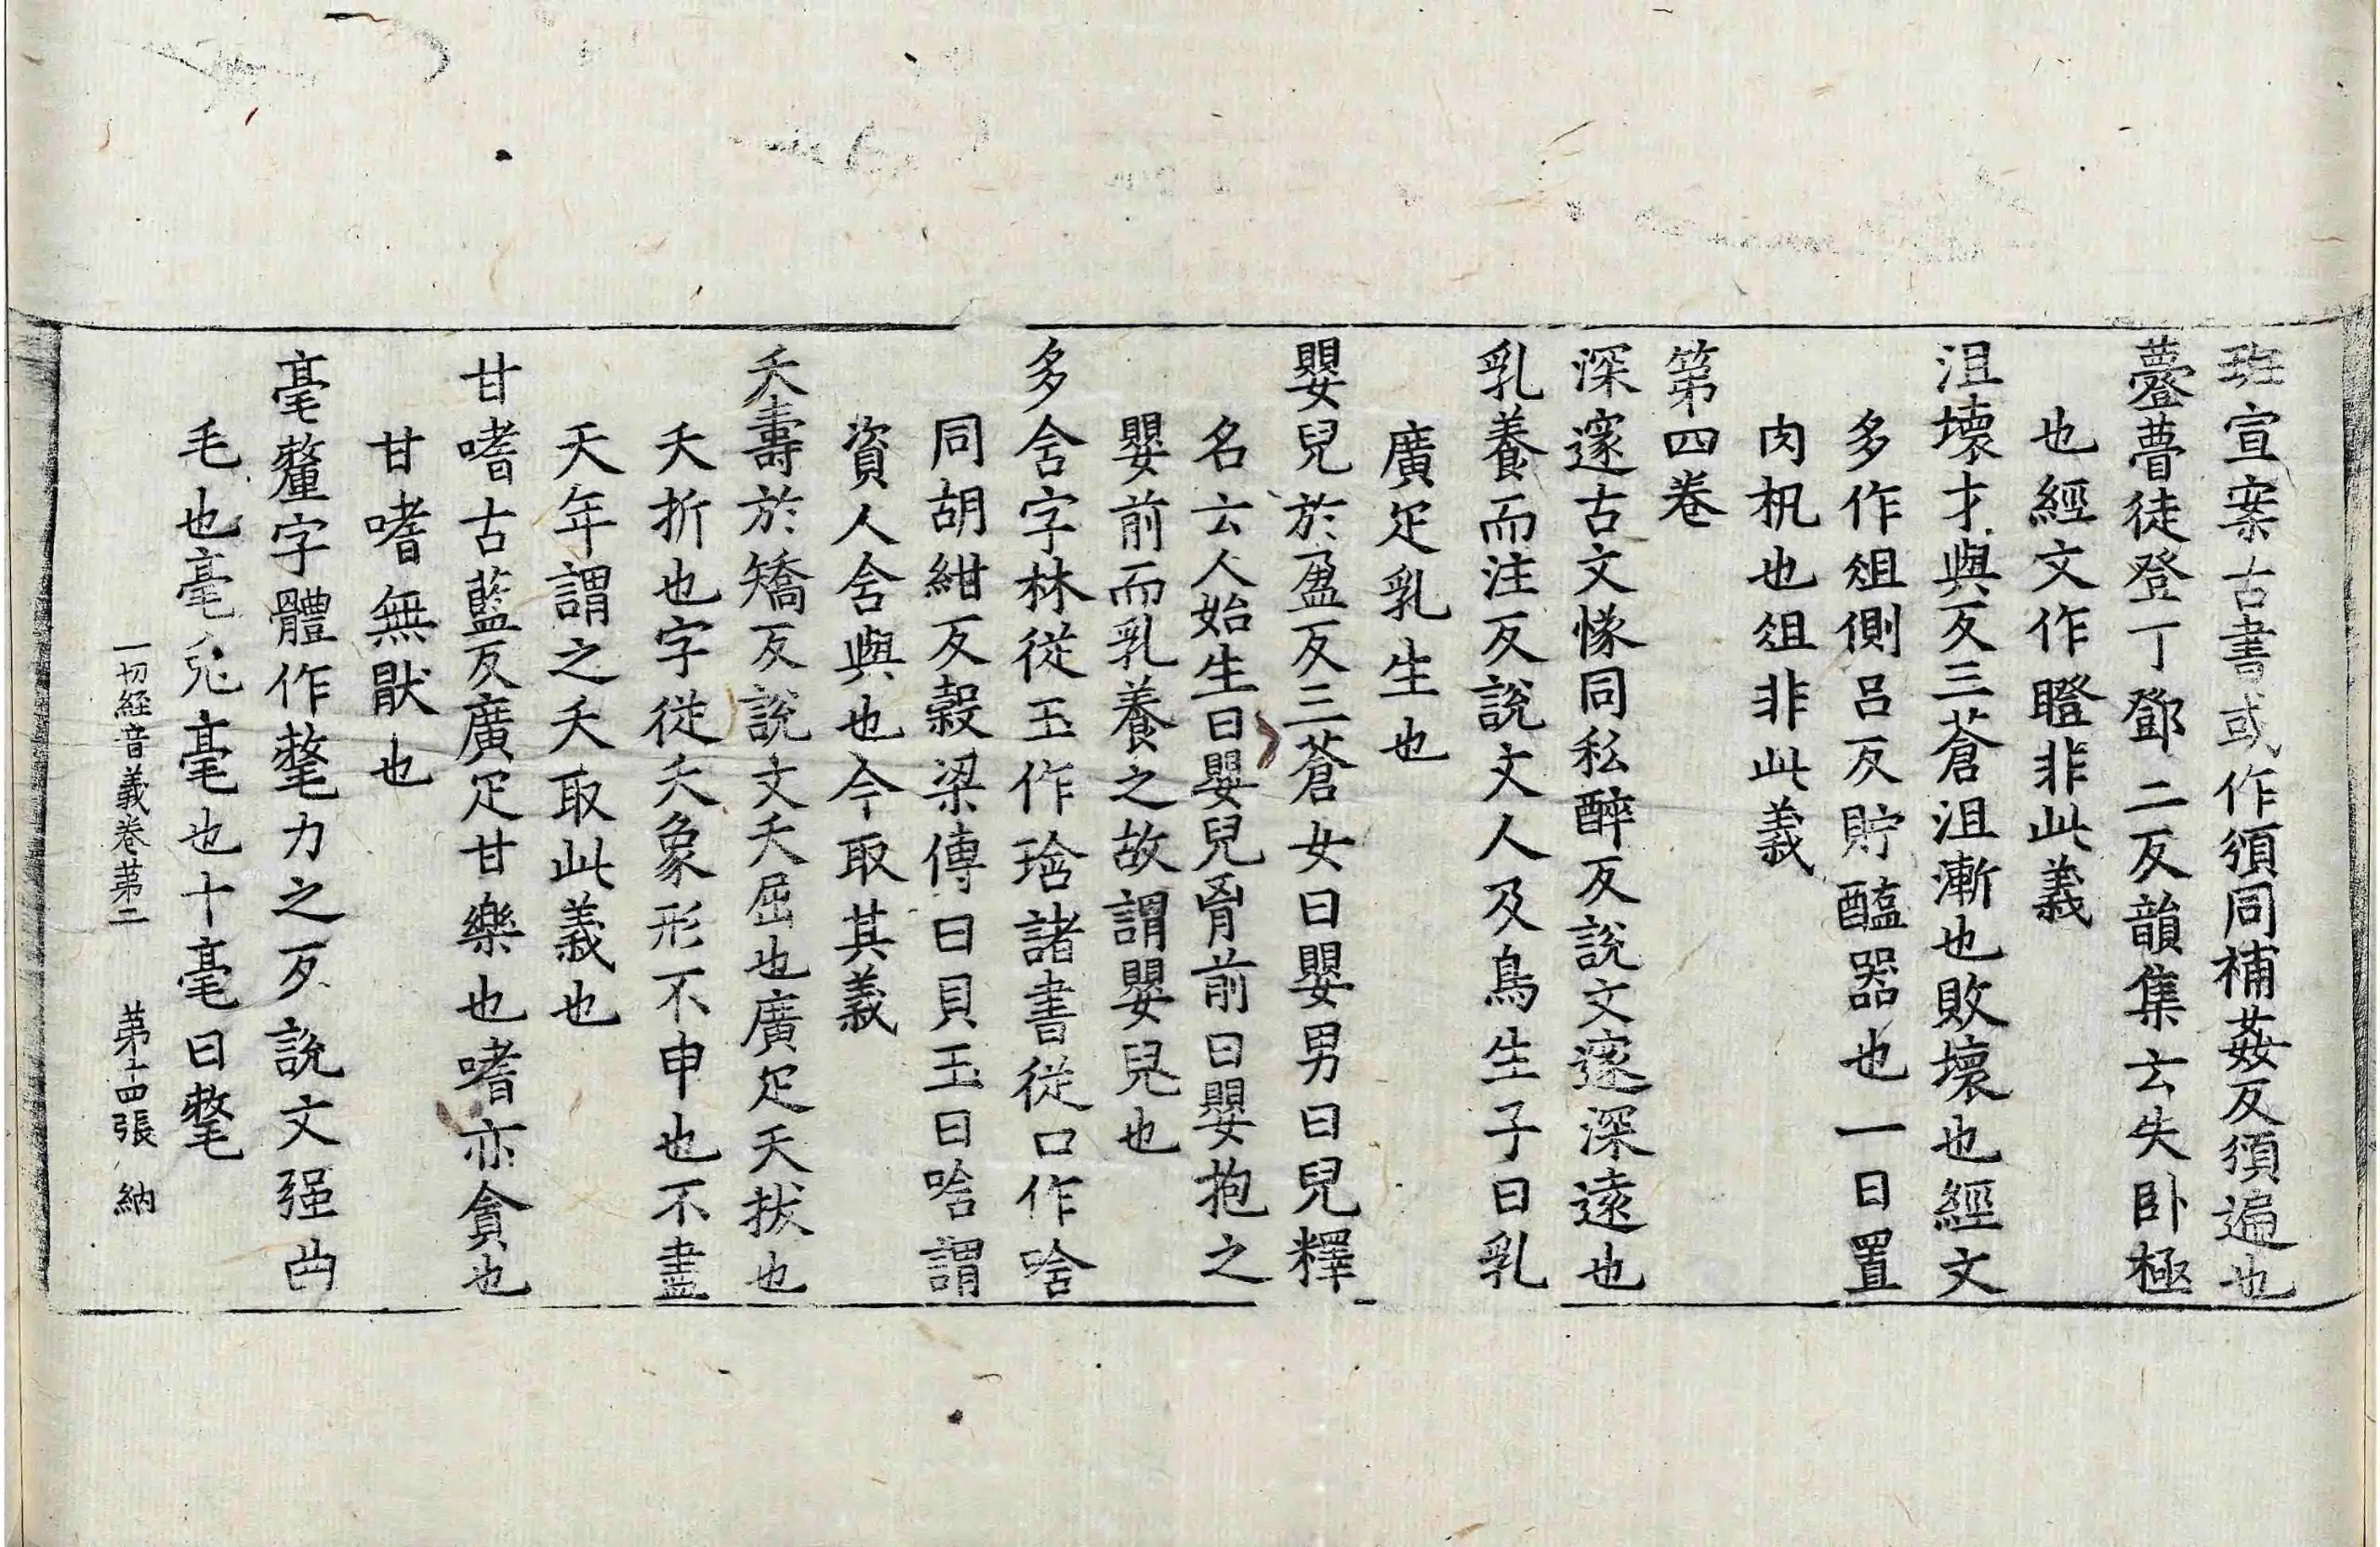 班宣案古書或作頒同補姦反頒遍也
䠬瞢徒登丁鄧二反韻集云失卧極
也經文作瞪非此義
沮壞才與反三蒼沮漸也敗壞也經文
多作俎側呂反貯醢器也一曰置
肉机也俎非此義
第四卷
深邃古文㥞同私醉反說文邃深遠也
乳養而注反說文人及鳥生子曰乳
廣疋乳生也
嬰兒於盈反三蒼女曰嬰男曰兒釋
名云人始生曰嬰兒𦙄前曰嬰抱之
嬰前而乳養之故謂嬰兒也
多含字林從玉作琀諸書從口作唅
同胡紺反穀梁傳曰貝玉曰唅謂
資人含與也今取其義
夭壽於矯反說文夭屈也廣疋夭拔也
夭折也字從夭象形不申也不盡
天年謂之夭取此義也
甘嗜古藍反廣疋甘樂也嗜亦貪也
甘嗜無猒也
毫釐字體作氂力之反說文强曲
毛也毫兎毫也十毫曰氂
一切經音義卷第二 第十四張 納